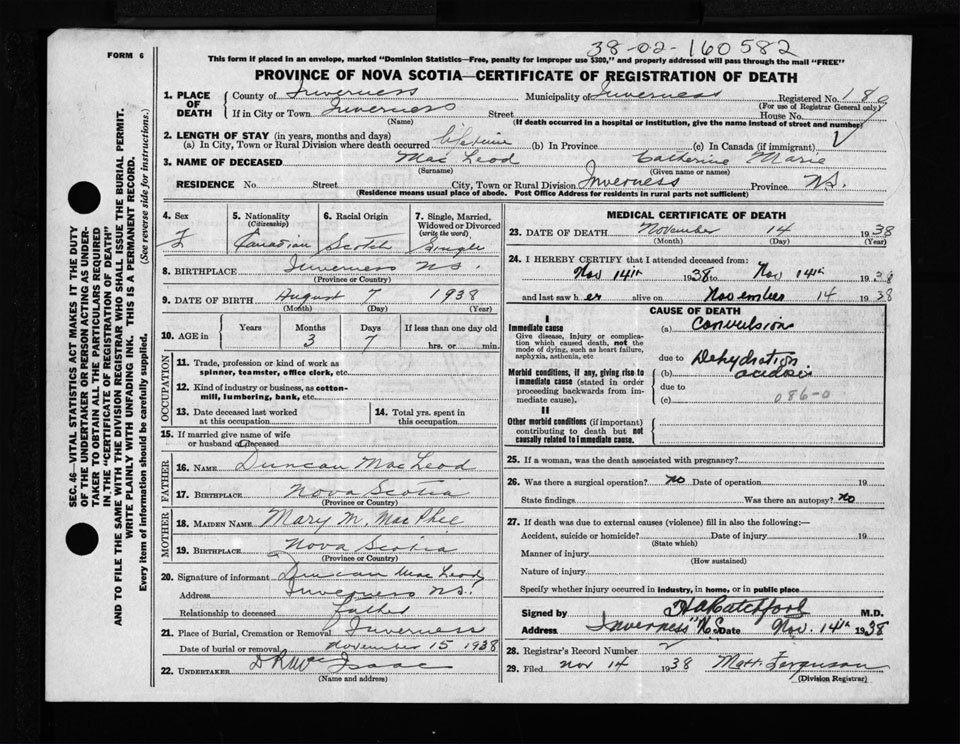 38-02-160582
FORM 6
This form if placed in an envelope, marked "Dominion Statistics—Free, penalty for improper use $300," and properly addressed will pass through the mail "FREE"
PROVINCE OF NOVA SCOTIA—CERTIFICATE OF REGISTRATION OF DEATH
SEC. 46—VITAL STATISTICS ACT MAKES IT THE DUTY
OF THE UNDERTAKER OR PERSON ACTING AS UNDER-
TAKER TO OBTAIN ALL THE PARTICULARS REQUIRED
IN THE "CERTIFICATE OF REGISTRATION OF DEATH"
AND TO FILE THE SAME WITH THE DIVISION REGISTRAR WHO SHALL ISSUE THE BURIAL PERMIT.
WRITE PLAINLY WITH UNFADING INK. THIS IS A PERMANENT RECORD.
Every item of information should be carefully supplied. (See reverse side for instructions.)
1. PLACE OF DEATH
County of Inverness Municipality of Inverness Registered No. 189
(For use of Registrar General only)
If in City or Town Inverness Street House No.
(Name) (If death occurred in a hospital or institution, give the name instead of street and number)
2. LENGTH OF STAY (in years, months and days)
(a) In City, Town or Rural Division where death occurred lifetime (b) In Province (c) In Canada (if immigrant)
3. NAME OF DECEASED Mac Leod Catherine Marie
(Surname) (Given name or names)
RESIDENCE No. Street City, Town or Rural Division Inverness Province N.S.
(Residence means usual place of abode. Post Office Address for residents in rural parts not sufficient)
4. Sex
F
5. Nationality
(Citizenship)
Canadian
6. Racial Origin
Scotch
7. Single, Married, Widowed or Divorced
(write the word)
Single
8. BIRTHPLACE Inverness N.S.
(Province or Country)
9. DATE OF BIRTH August 7 1938
(Month) (Day) (Year)
10. AGE in
Years Months Days If less than one day old
3 7 hrs. or min.
OCCUPATION
11. Trade, profession or kind of work as
spinner, teamster, office clerk, etc.
12. Kind of industry or business, as cotton-
mill, lumbering, bank, etc.
13. Date deceased last worked
at this occupation
14. Total yrs. spent in
this occupation
15. If married give name of wife
or husband of deceased
FATHER
16. Name Duncan Mac Leod
17. Birthplace Nova Scotia
(Province or Country)
MOTHER
18. Maiden Name Mary M. Mac Phee
19. Birthplace Nova Scotia
(Province or Country)
20. Signature of informant Duncan Mac Leod
Address Inverness N.S.
Relationship to deceased father
21. Place of Burial, Cremation or Removal Inverness
Date of burial or removal november 15 1938
22. UNDERTAKER Isaac
(Name and address)
MEDICAL CERTIFICATE OF DEATH
23. DATE OF DEATH November 14 1938
(Month) (Day) (Year)
24. I HEREBY CERTIFY that I attended deceased from:
Nov 14th 1938 to Nov 14th 1938
and last saw her alive on November 14 1938
CAUSE OF DEATH
I
Immediate cause
Give disease, injury or complica-
tion which caused death, not the
mode of dying, such as heart failure,
asphyxia, asthenia, etc
(a) Convulsion
due to Dehydration
Morbid conditions, if any, giving rise to
immediate cause (stated in order
proceeding backwards from im-
mediate cause).
(b) acidosis
due to
(c) 086-0
II
Other morbid conditions (if important)
contributing to death but not
causally related to immediate cause.
25. If a woman, was the death associated with pregnancy?
26. Was there a surgical operation? No Date of operation 19
State findings Was there an autopsy? No
27. If death was due to external causes (violence) fill in also the following:—
Accident, suicide or homicide? Date of injury 19
(State which)
Manner of injury
(How sustained)
Nature of injury
Specify whether injury occurred in industry, in home, or in public place
Signed by H A Ratchford M.D.
Address Inverness N.S. Date Nov. 14th 1938
28. Registrar's Record Number 2
29. Filed nov 14 1938 Matt. Ferguson
(Division Registrar)